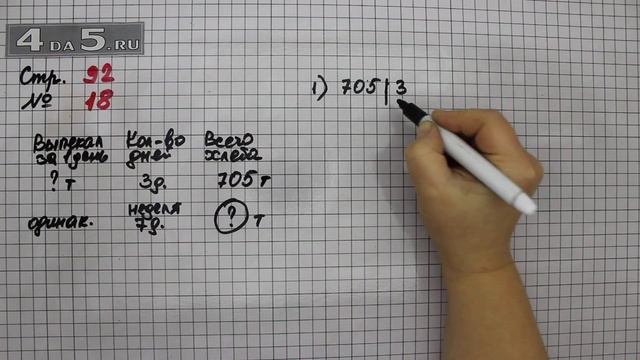 4DA5.RU
Стр. 92
№ 18
1) 705 3
Выпекал за 1 день
Кол-во дней
Всего хлеба
? т 3д. 705 т
одинак. неделя 7д. ? т